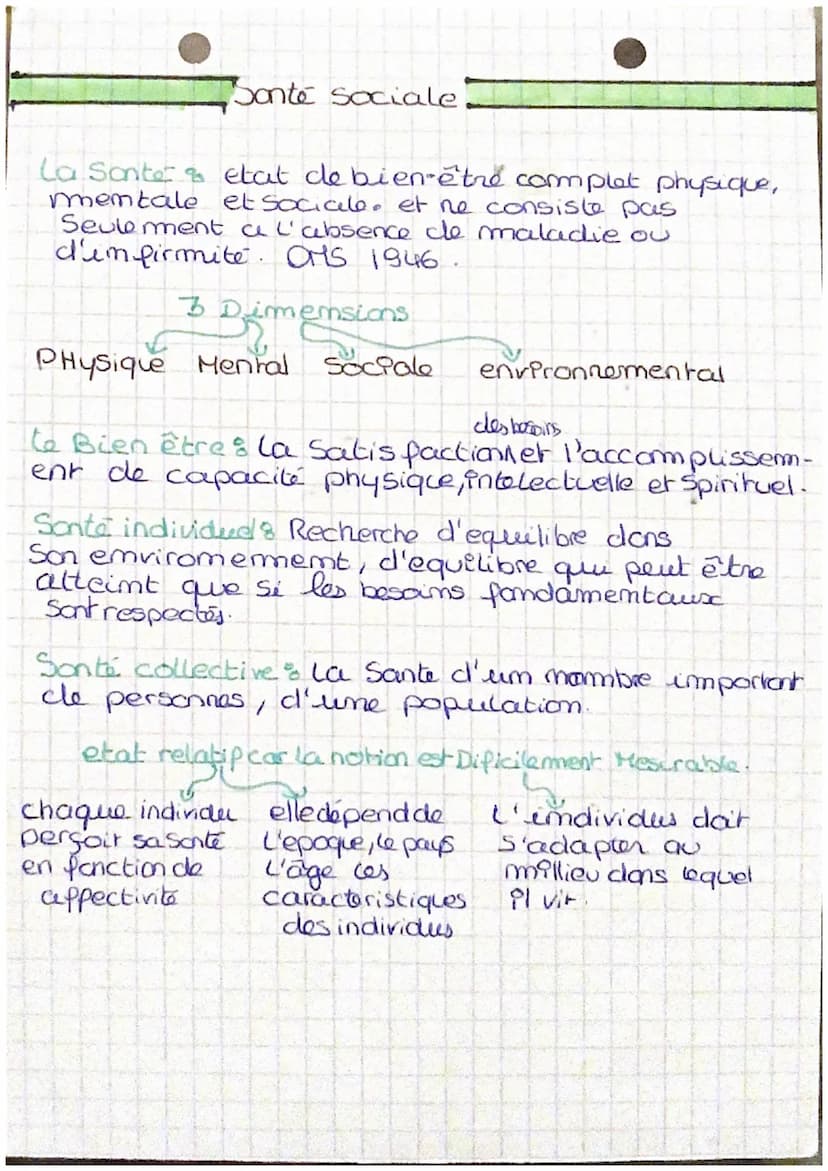 Santé sociale
La Santé : etat de bien-être complet physique,
mentale et sociale. et ne consiste pas
Seulement a l'absence de maladie ou
d'infirmité. OMS 1946.
3 Dimensions
PHysique Mental Sociale environnemental
des besoins
Le Bien être : La Satisfaction et l'accomplissem-
ent de capacité physique, intelectuelle et Spirituel.
Santé individuel : Recherche d'equilibre dans
Son enviromement, d'equilibre qui peut être
atteint que si les besoins fondamentaux
Sont respectés.
Santé collective : La Sante d'un nombre important
de personnes, d'une population.
etat relatif car la notion est Dificilement Mesurable.
chaque individu elle dépend de L'individus doit
perçoit sa santé L'epoque, le pays S'adapter au
en fonction de L'âge les millieu dans lequel
affectivité caractoristiques il vit.
des individus